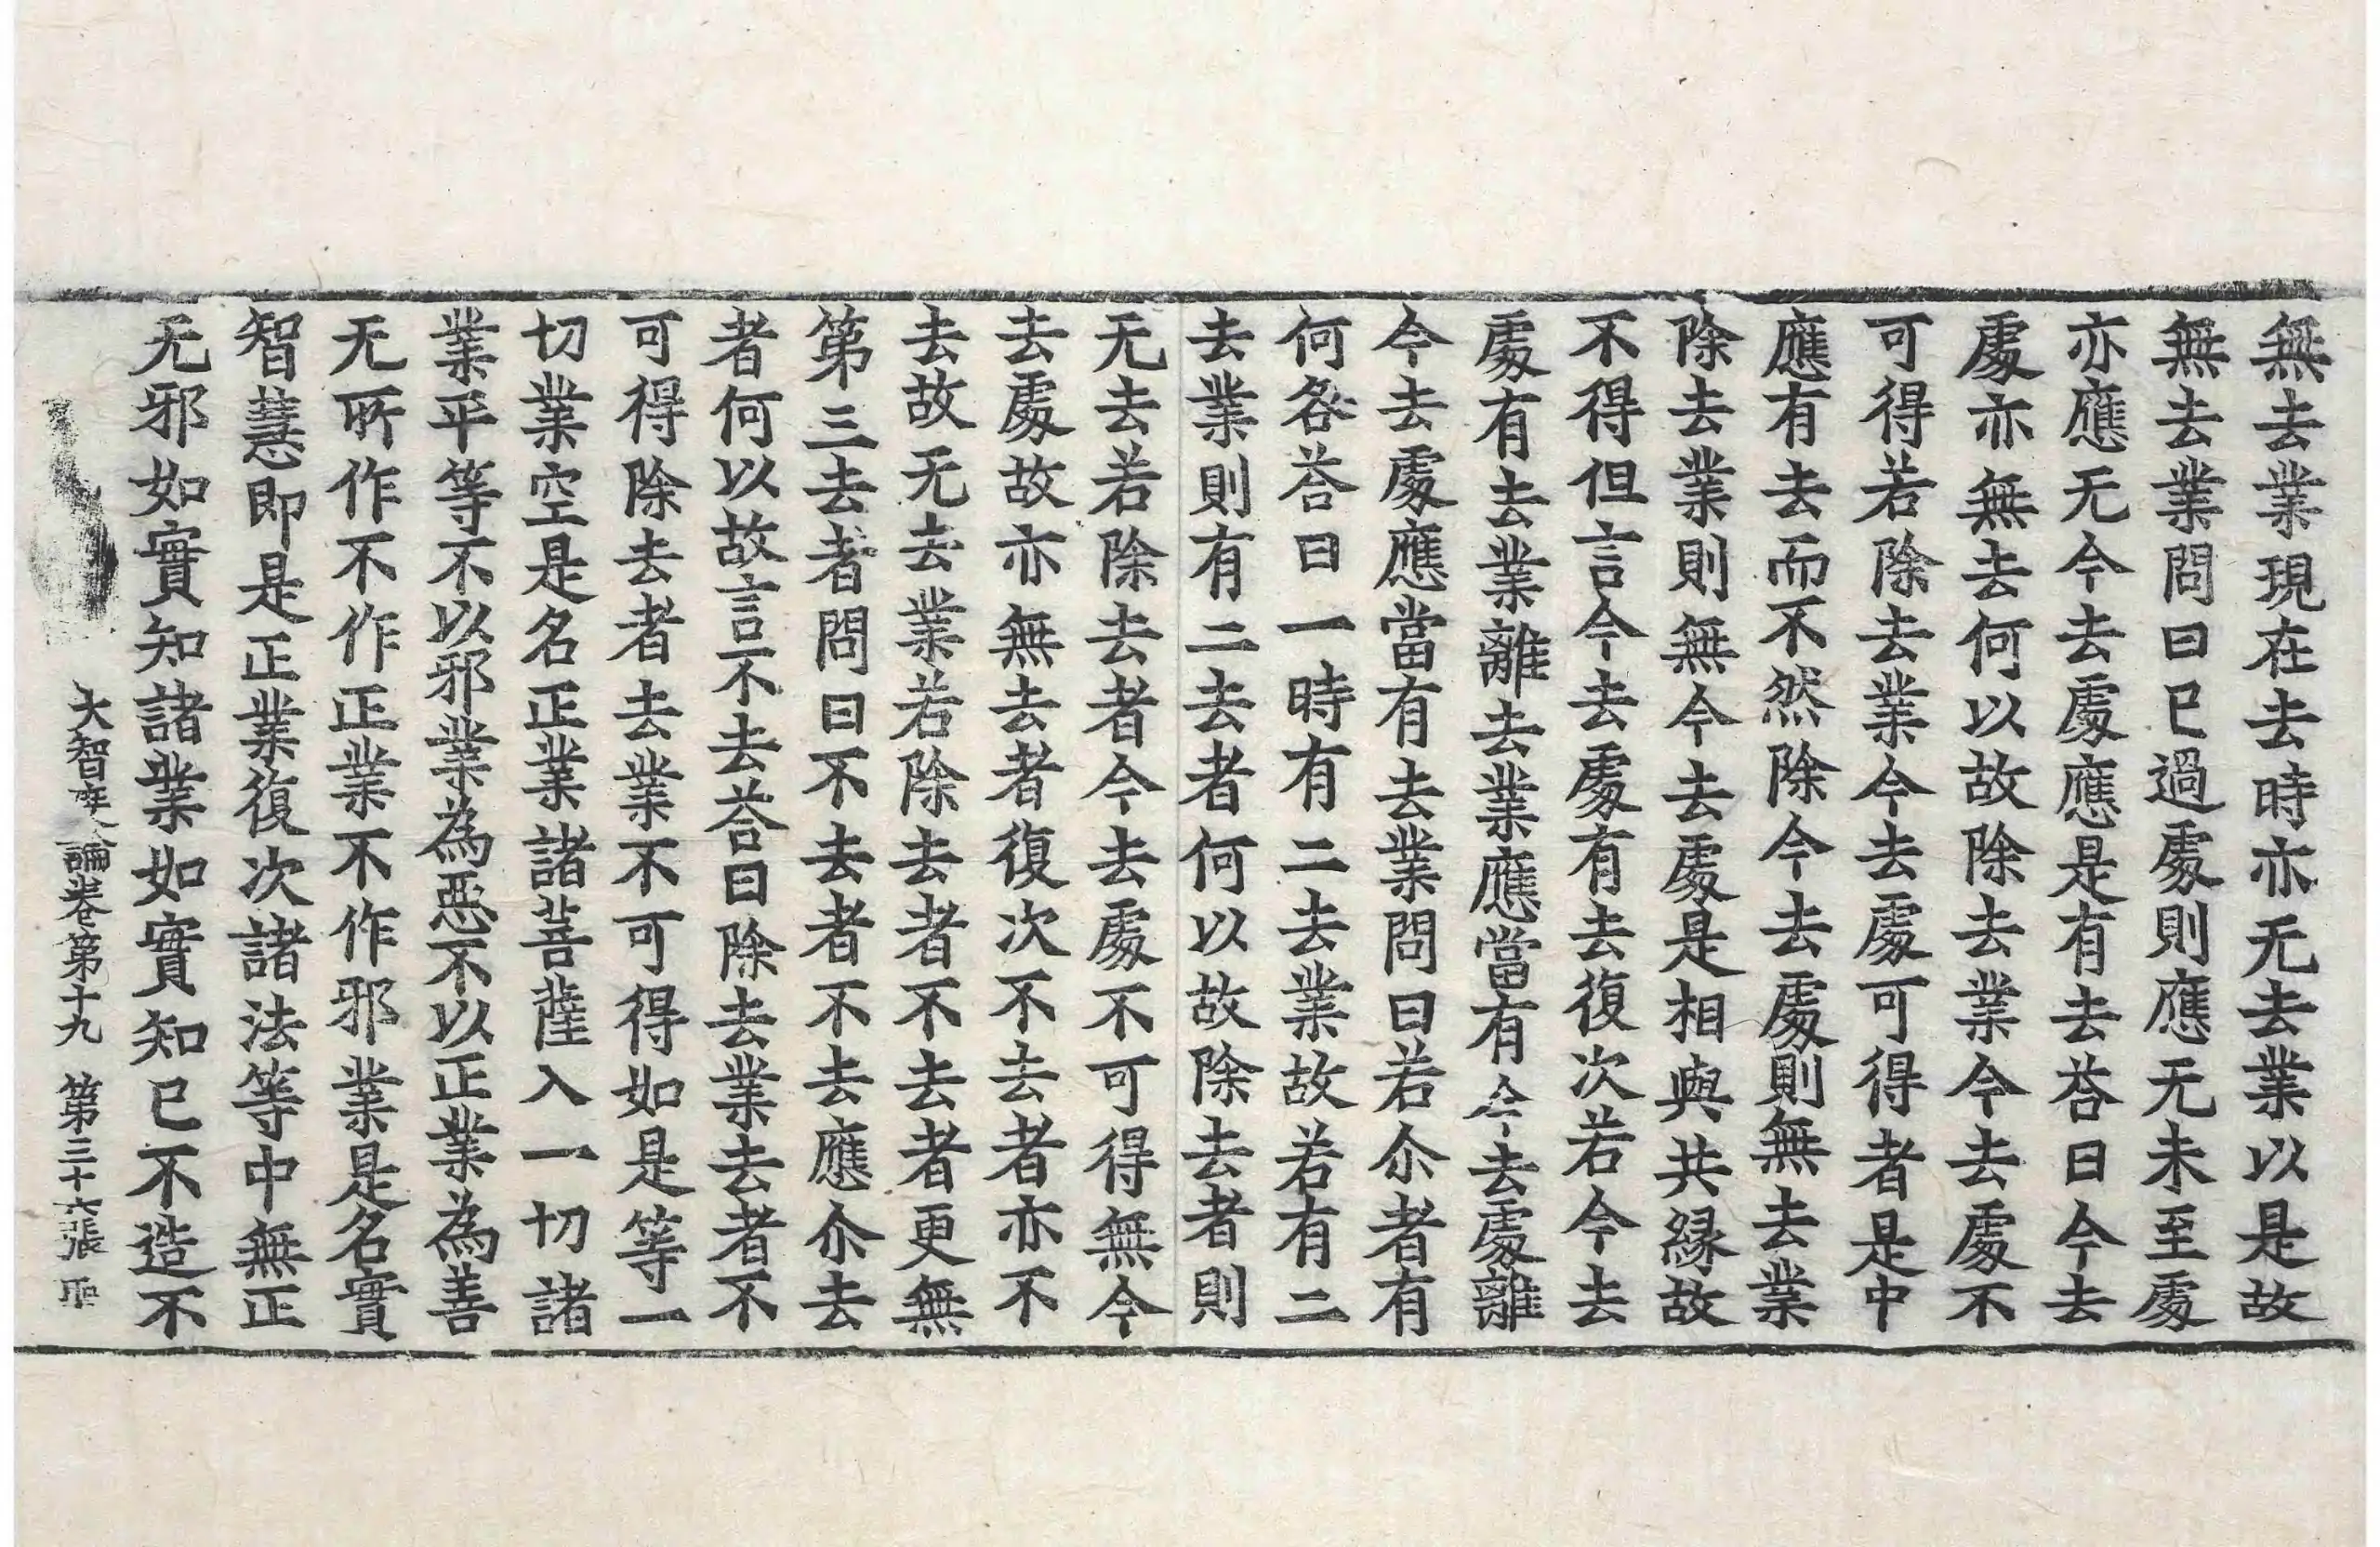 無去業現在去時亦无去業以是故
無去業問曰已過處則應无未至處
亦應无今去處應是有去荅曰今去
處亦無去何以故除去業今去處不
可得若除去業今去處可得者是中
應有去而不然除今去處則無去業
除去業則無今去處是相與共緣故
不得但言今去處有去復次若今去
處有去業離去業應當有今去處離
今去處應當有去業問曰若尒者有
何咎荅曰一時有二去業故若有二
去業則有二去者何以故除去者則
无去若除去者今去處不可得無今
去處故亦無去者復次不去者亦不
去故无去業若除去者不去者更無
第三去者問曰不去者不去應尒去
者何以故言不去荅曰除去業去者不
可得除去者去業不可得如是等一
切業空是名正業諸菩薩入一切諸
業平等不以邪業為惡不以正業為善
无所作不作正業不作邪業是名實
智慧即是正業復次諸法等中無正
无邪如實知諸業如實知已不造不
大智度論卷第十九 第三十六張